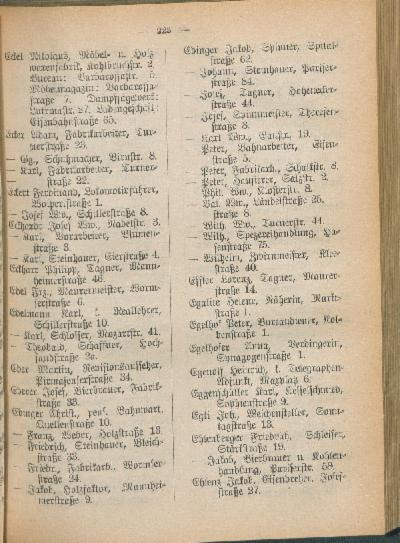 — 223 —
Eckel Nikolaus, Möbel- u. Holz-
warenfabrik, Kohlbruchstr. 2.
Bureau: Barbarossastr. 5.
Möbelmagazin: Barbarossa-
straße 7. Dampfsägewerk:
Lutrinastr. 27,
Eisenbahnstraße 65.
Ecker Adam, Fabrikarbeiter, Tur-
nerstraße 23.
— Gg., Schuhmacher, Bleustr. 8.
— Karl, Fabrikarbeiter, Turner-
straße 22.
Eckert Ferdinand, Lokomotivführer,
straße 1.
— Josef Ww., Schillerstraße 8.
Eckhardt Josef Ww., Nadelstr. 3.
— Karl, Bararbeiter, Blumen-
straße 3.
— Karl, Steinhauer, Gierstraße 4.
Eckhart Philipp, Tagner, Mann-
heimerstraße 46.
Edel Frz., Maurermeister, Worm-
serstraße 6.
Edelmann Karl, k. Reallehrer,
Schillerstraße 10.
— Karl, Schlosser, Mozartstr. 41.
— Theobald, Schaffner, Hoch-
sandstraße 2a.
Eder Martin, Revisionsaufseher,
Pirmasenserstraße 34.
Ederer Josef, Bierbrauer, Fabrik-
straße 33.
Edinger Christ., pens. Bahnwart,
Quellenstraße 10.
— Franz, Weber, Holzstraße 13.
— Friedrich, Steinhauer, Bleich-
straße 33.
— Friedr., Fabrikarb., Wormser-
straße 34.
— Jakob, Holzfaktor, Mannhei-
merstraße 9.
Edinger Jakob, Spinner, Spital-
straße 62.
— Johann, Steinhauer, Pariser-
straße 84.
— Josef, Tagner, Hohenecker-
straße 44.
— Josef, Sommmeister, Theresien-
straße 8.
— Karl Ww., 19.
— Peter, Bahnarbeiter, Eisen-
straße 5.
— Peter, Fabrikarb., Schulstr. 8.
— Peter, Hausierer, Salzstr. 2.
— Phil. Ww., Klosterstr. 8.
— Val. Ww., Ländelstraße 25.
straße 8.
— Wilh. Ww., Turnerstr. 44.
— Wilh., Spezereihandlung, Ha-
senstraße 75.
— Wilhelm, Zwirnmeister, Klee-
straße 40.
Effler Lorenz, Tagner, Maurer-
straße 14.
Egalite Helene, Näherin, Markt-
straße 1.
Egelhof Peter, Bureaudiener, Kol-
benstraße 1.
Egelhofer Anna, Verdingerin,
Synagogenstraße 1.
Egenolf Heinrich, k. Telegraphen-
Adjunkt, Maxplatz 6.
Eggenschüller Karl, Kesselschmied,
Sophienstraße 9.
Egli Joh., Weichensteller, Sonn-
tagstraße 13.
Ehlenberger Friedrich, Schleifer,
Starkstraße 19.
— Jakob, Bierbrauer u. Kohlen-
handlung, Pariserstr. 58.
Ehlenz Jakob, Eisendreher, Josef-
straße 27.